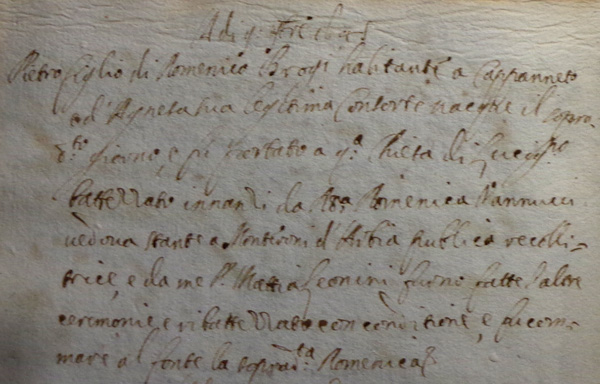 Adi 9: ...
Pietro figlio di Domenico Brogi habitante a Cappanneto
ed' Agneta sua legitima Consorte nacque il sopra
d.to giorno, e fu portato a q.a Chiesa di Lucig.no
battezzato innanzi da M.a Domenica Vannucci
vedova stante a Monteroni d'Arbia publica recolli=
trice, e da me P. Mattia Leonini furno fatte l'altre
ceremonie, e ribattezzato con conditione, e fu com=
mare al fonte la soprad.ta Domenica